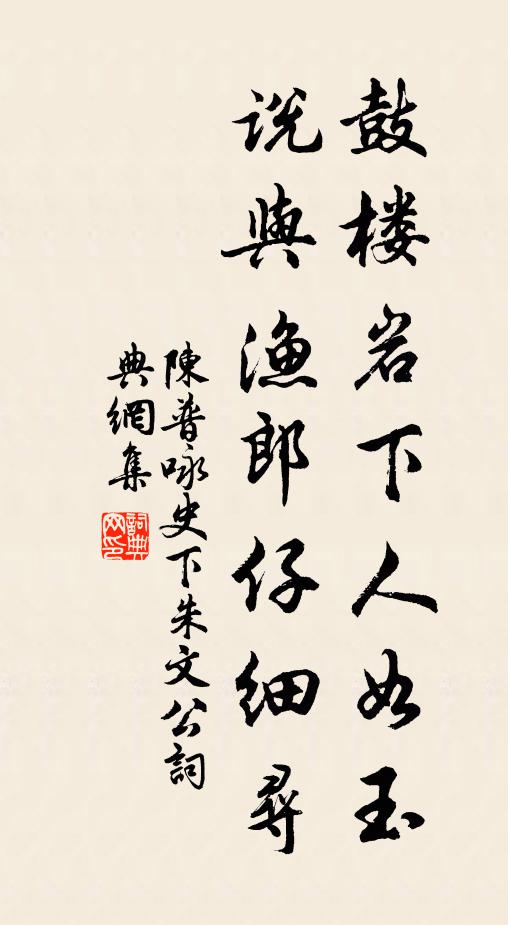 鼓楼岩下人如玉
説與漁郎仔细尋
陳普咏史下朱文公詞
典網集
詞典网印